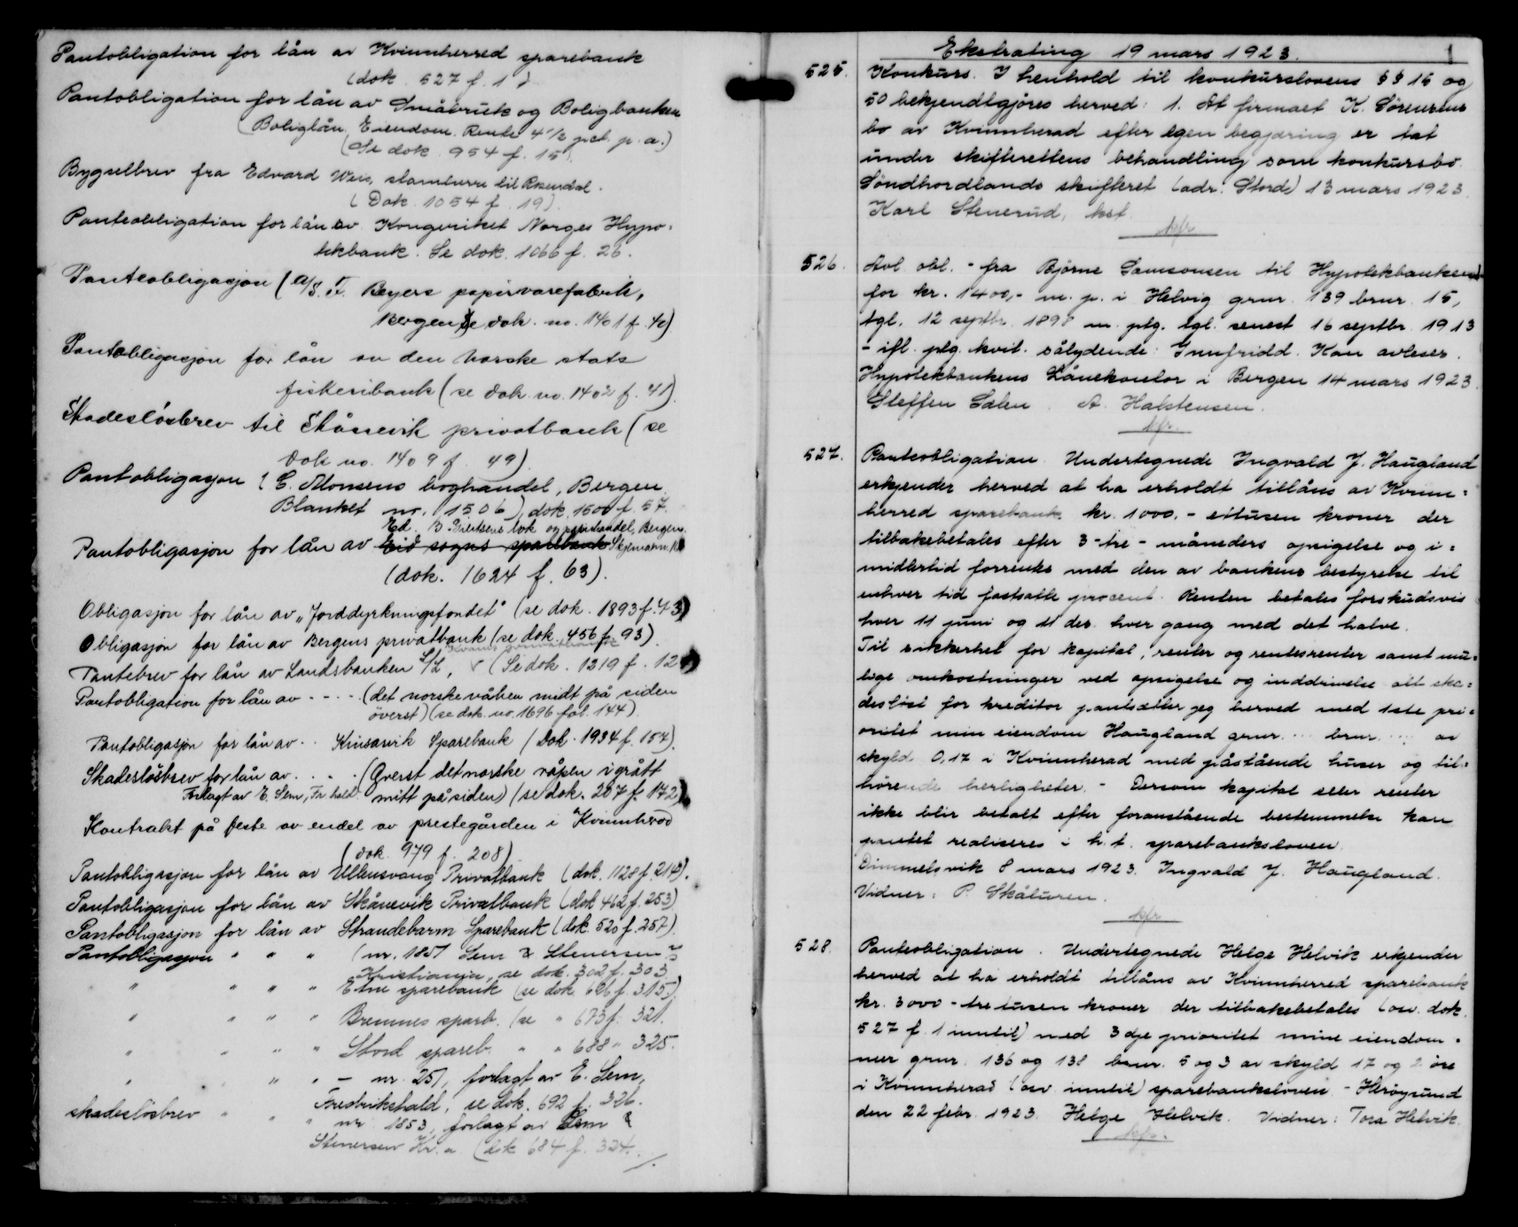 Pantobligation for lån av Kvinnherred sparebank
(dok. 527 f. 1)
Pantobligation for lån av Småbruk og Boligbanken
(Boliglån, Eiendom. Rente 4 1/2 pct. p. a.)
(Se dok. 954 f. 15).
Bygselbrev fra Edvard Weis, stamherre til Rosendal.
(Dok. 1054 f. 19)
Panteobligation for lån av Kongeriket Norges Hypo-
tekbank. Se dok. 1066 f. 26.
Panteobligasjon (A/S. F. Beyers papirvarefabrik,
Bergen, se dok. no. 1401 f. 40)
Pantobligasjon for lån av den norske stats
fiskeribank (se dok. no. 1402 f. 41).
Skadesløsbrev til Skånevik privatbank (se
dok no. 1409 f. 49)
Pantobligasjon (C. Monsens boghandel, Bergen
Blanket nr. 1506) dok. 1500 f. 57.
Ed. B. Giertsens bok og papirhandel, Bergen.
Pantobligasjon for lån av Eid sogns sparebank
(dok. 1624 f. 63).
Obligasjon for lån av "Jorddyrkningsfondet" (se dok. 1893 f. 73)
Obligasjon for lån av Bergens privatbank (se dok. 456 f. 93).
Pantebrev for lån av Landsbanken S/L, (Se dok. 1219 f. 12
Pantobligation for lån av - - - - (det norske våben midt på siden
överst) (se dok. no. 1696 fol. 144)
Pantobligasjon for lån av . . Kinsarvik Sparebank (Dok. 1934 f. 154).
Skadesløsbrev for lån av . . . . (Øverst det norske våpen i grått
Forlagt av E. Sem, Fr. hald. mitt på siden) (se dok. 207 f. 172)
Kontrakt på feste av endel av prestegården i Kvinnherad
(dok. 979 f. 208)
Pantobligasjon for lån av Ullensvang Privatbank (dok. 1128 f. 214).
Pantobligasjon for lån av Skånevik Privatbank (dok 462 f. 253)
Pantobligasjon for lån av Strandebarm Sparebank (dok. 520 f. 257).
Pantobligasjon " " " (nr. 1851 Sem & Stenersen A/S
Kristiania, se dok. 302 f. 303
" " " " Etne sparebank (se dok 626 f. 315)
" " " " Bremnes spareb. (se " 673 f. 321.
" " " " Stord spareb. " " 688 " 325.
" " " - nr. 251, forlagt av E. Sem,
Fredrikshald, se dok. 692 f. 326.
skadesløsbrev " " " nr. 1853, forlagt av Sem &
Stenersen Kr.a (dok 684 f. 324.
Ekstrating 19 mars 1923. 1
525. Konkurs. I henhold til konkurslovens §§ 16 og
50 bekjendtgjøres herved: 1. At firmaet K. Sørensens
bo av Kvinnherad efter egen begjæring er tat
under skifterettens behandling som konkursbo.
Søndhordlands skifteret (adr: Stord) 13 mars 1923.
Karl Stenerud, kst.
526. Avl obl. - fra Bjørne Samsonsen til Hypotekbanken
for kr. 1400,- m. p. i Helvig gnr. 139 brnr. 15,
tgl. 12 septbr. 1898 m. ptg. tgl. senest 16 septbr. 1913
- ifl. ptg. kvit. sålydende: Innfridd. Kan avleses.
Hypotekbankens Lånekontor i Bergen 14 mars 1923.
Steffen Salen. A. Halstensen.
527. Panteobligation. Undertegnede Ingvald J. Haugland
erkjender herved at ha erholdt tillåns av Kvinn-
herred sparebank kr. 1000,- eitusen kroner der
tilbakebetales efter 3-tre-måneders opsigelse og i-
midlertid forrentes med den av bankens bestyrelse til
enhver tid fastsatte procent. Renten betales forskudsvis
hver 11 juni og 11 des. hver gang med det halve.
Til sikkerhet for kapital, renter og rentesrenter samt mu-
lige omkostninger ved opsigelse og inddrivelse alt ska-
desløst for kreditor pantsætter jeg herved med 1ste pri-
oritet min eiendom Haugland gnr. ... brnr. ... av
skyld 0,17 i Kvinnherad med påstående huser og til-
hørende herligheter. - Dersom kapital eller renter
ikke blir betalt efter foranstående bestemmelse kan
pantet realiseres i h. t. sparebanksloven.
Dimmelsvik 8 mars 1923. Ingvald J. Haugland.
Vidner: P. Skåluren.
528. Panteobligation. Undertegnede Helge Helvik erkjender
herved at ha erholdt tillåns av Kvinnherred sparebank
kr. 3000 - tre tusen kroner der tilbakebetales (osv. dok.
527 f. 1 inntil) med 3dje prioritet mine eiendom-
mer gnr. 136 og 138 brnr. 5 og 3 av skyld 17 og 2 øre
i Kvinnherad (osv inntil) sparebanksloven. - Herøysund
den 22 febr. 1923. Helge Helvik. Vidner: Tora Helvik.